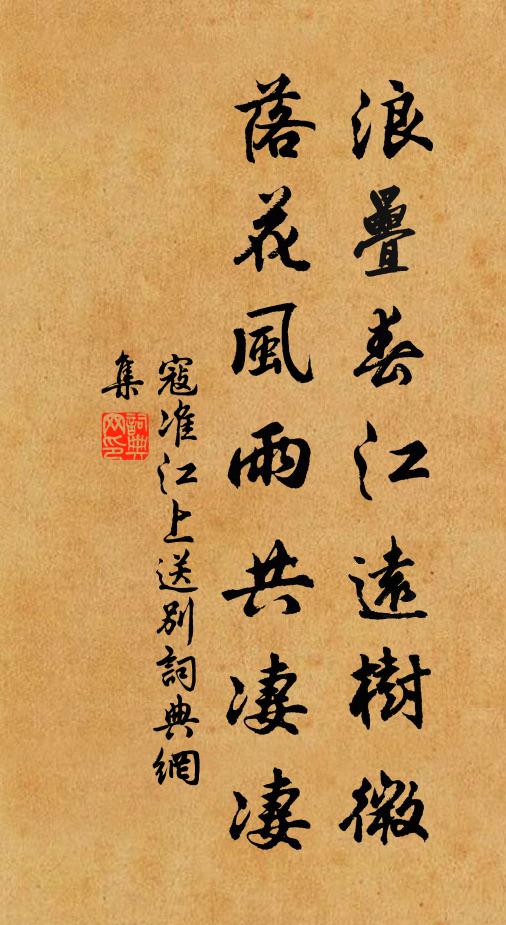 浪疊春江遠樹微
落花風雨共淒淒
寇准江上送別詞典網
集
詞典
网印